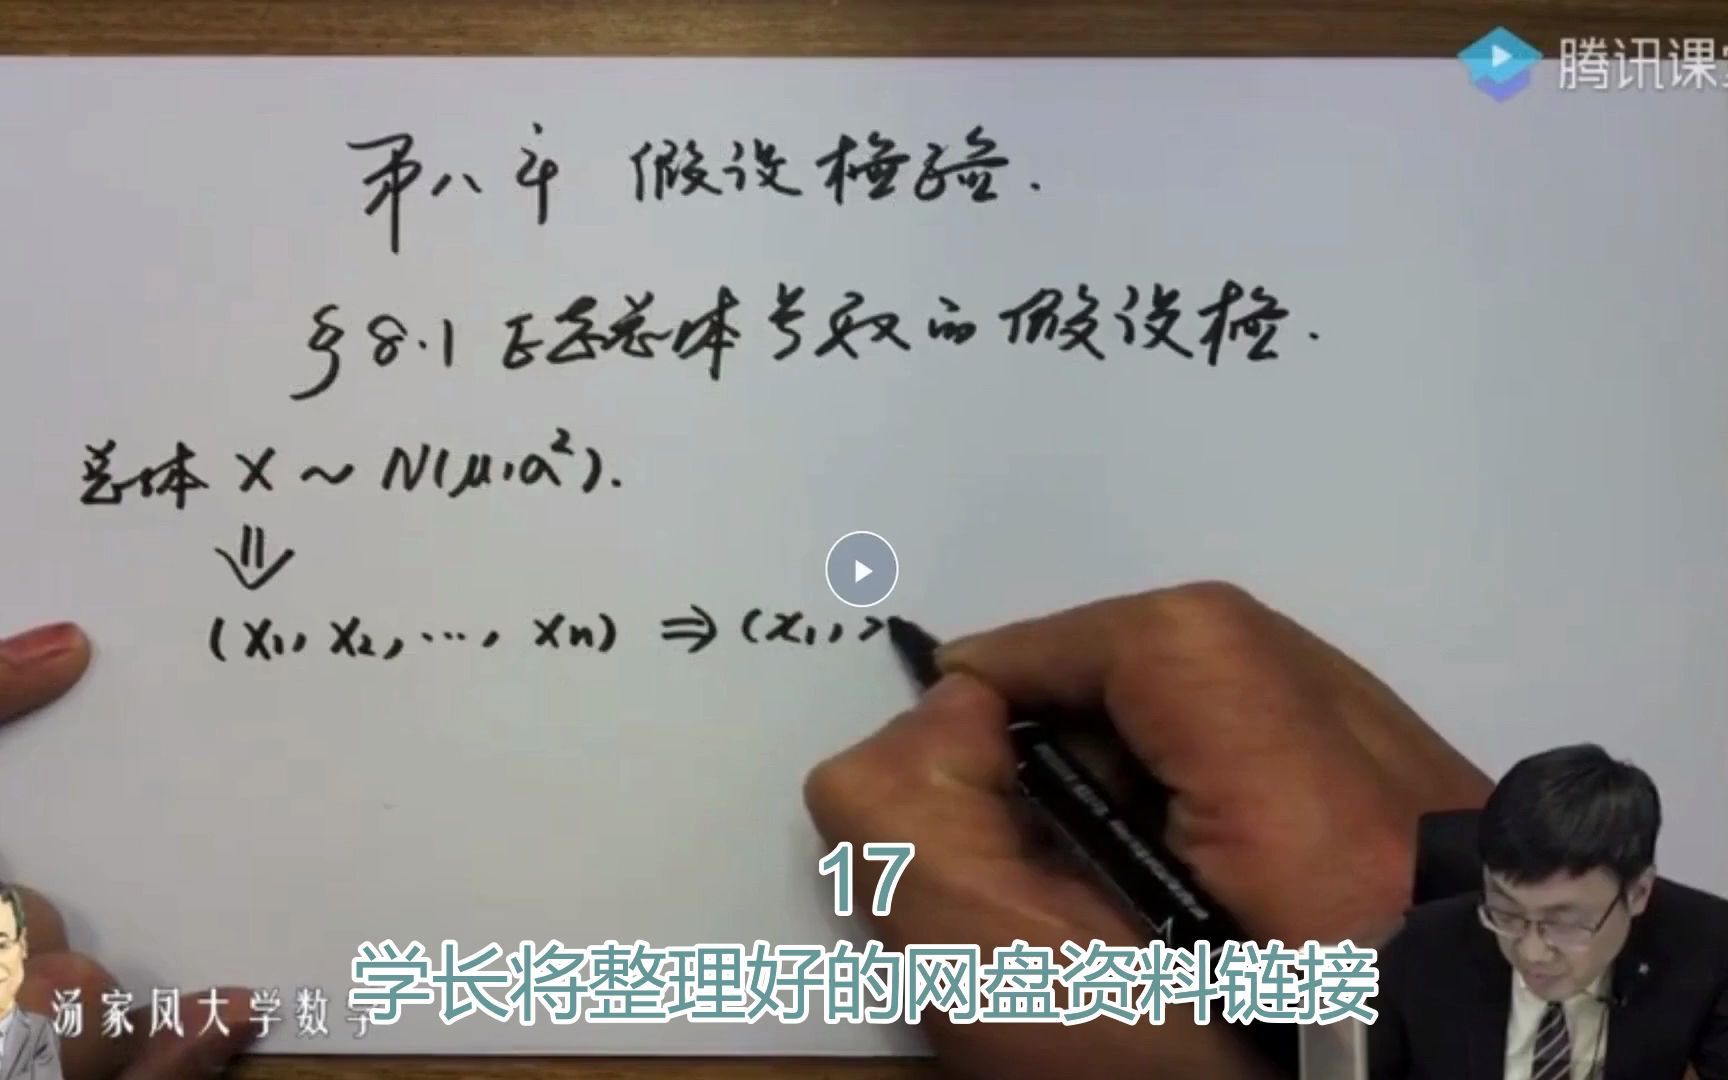 腾讯课
第八章 假设检验.
§8.1 正态总体参数的假设检.
总体 X ~ N(μ,σ²).
⇓
(X₁, X₂, ..., Xn) ⇒ (x₁,
17
学长将整理好的网盘资料链接
汤家凤大学数学